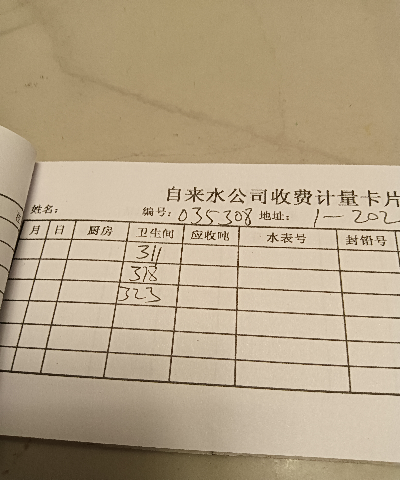 自来水公司收费计量卡片
姓名: 编号: 035308 地址: 1-202
月 日 厨房 卫生间 应收吨 水表号 封铅号
311
318
323